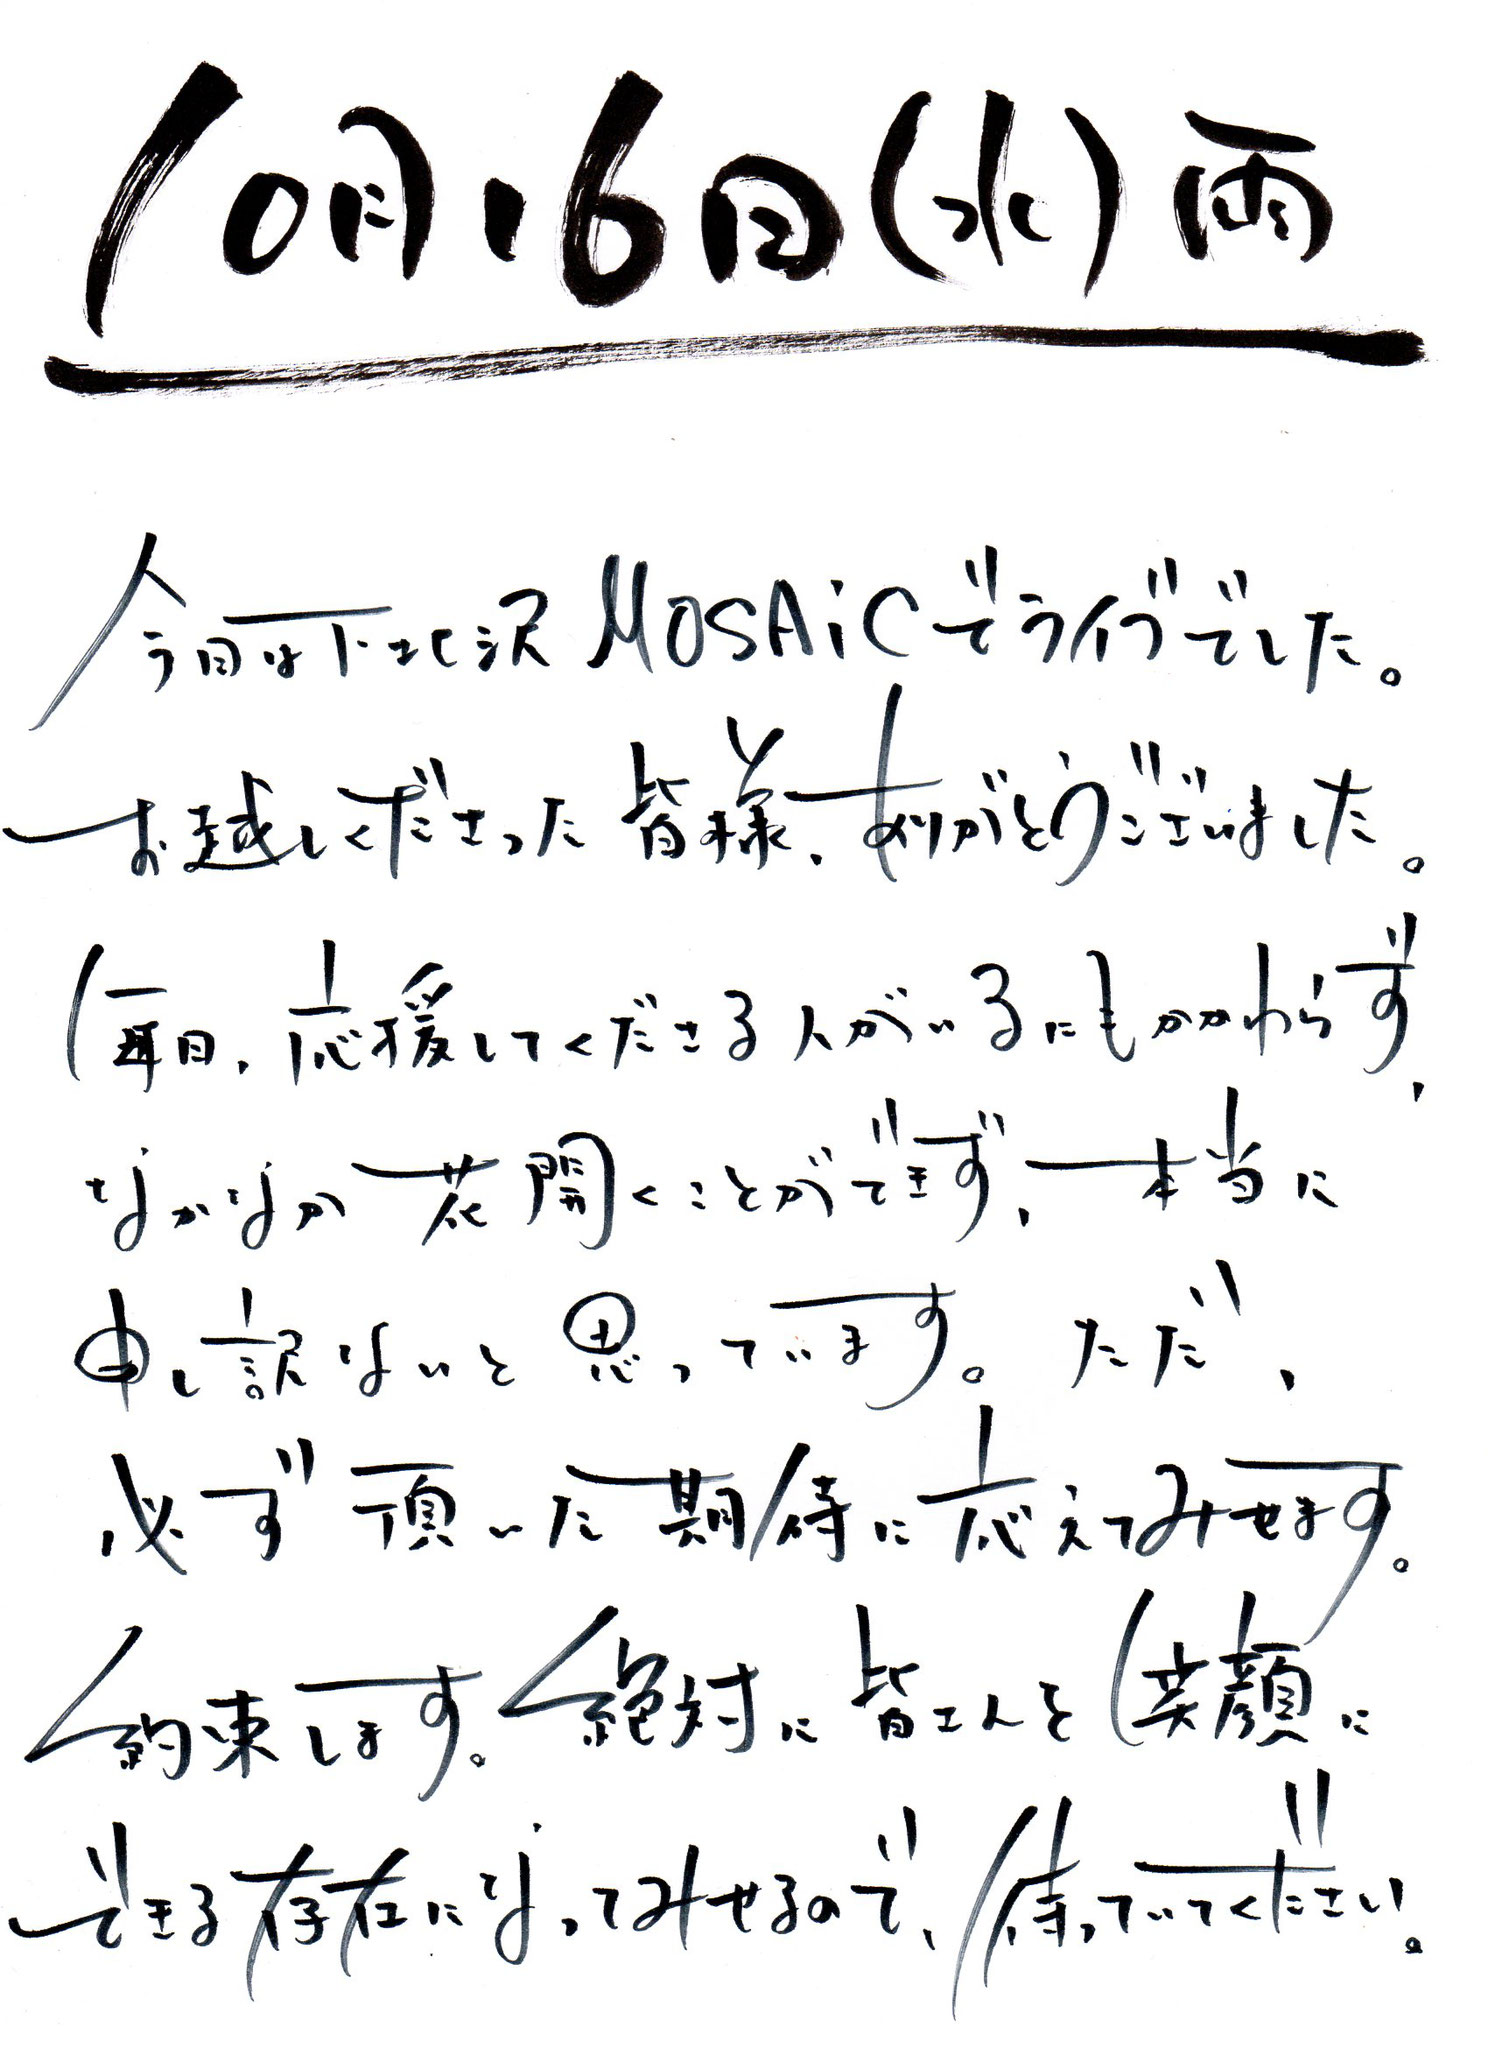 10月16日(水)雨
今日は下北沢MOSAiCでライブでした。
お越しくださった皆様、ありがとうございました。
毎日、応援してくださる人がいるにもかかわらず、
なかなか花開くことができず、本当に
申し訳ないと思っています。ただ、
必ず頂いた期待に応えてみせます。
約束します。絶対に皆さんを笑顔に
できる存在になってみせるので、待っていてください。